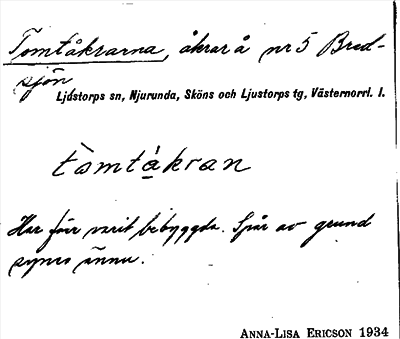 Tomtåkrarna, åkrar å nr 5 Bred-
sjön
Ljustorps sn, Njurunda, Sköns och Ljustorps tg, Västernorrl. l.
tòmtá̱kran
Har förr varit bebyggda. Spår av grund
synes ännu.
ANNA-LISA ERICSON 1934